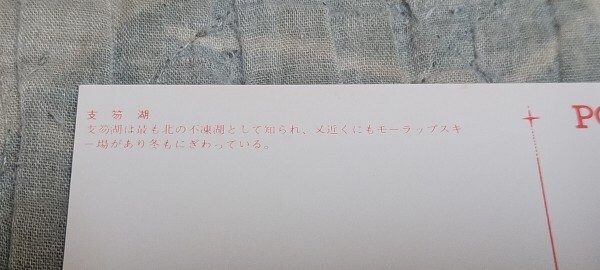 支笏湖
支笏湖は最も北の不凍湖として知られ、又近くにもモーラップスキ
ー場があり冬もにぎわっている。
PO